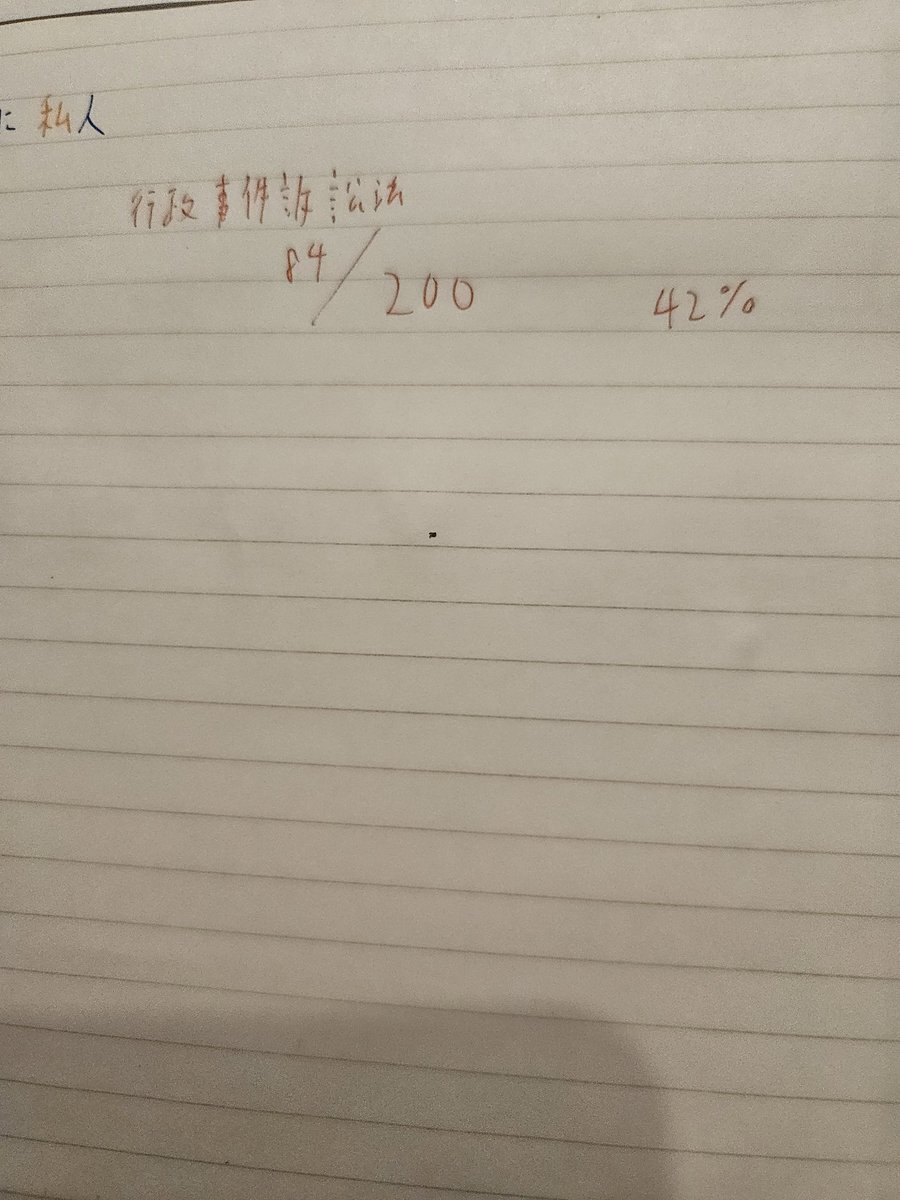 に私人
行政事件訴訟法
84/200 42%